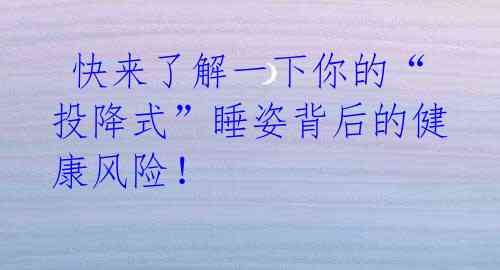 快来了解一下你的“
投降式”睡姿背后的健
康风险！